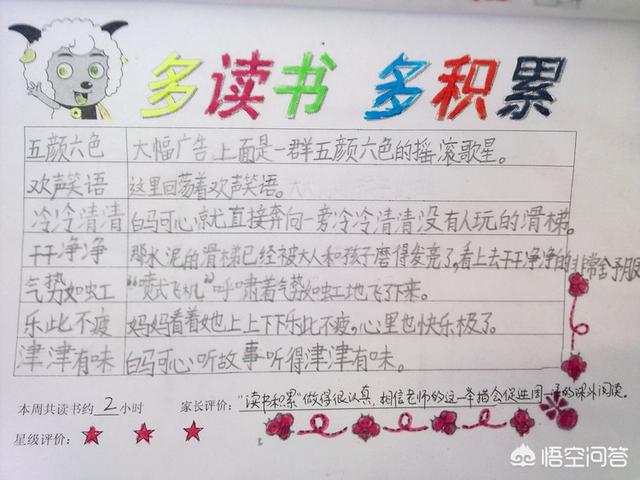 多读书 多积累
五颜六色 大幅广告上面是一群五颜六色的摇滚歌星。
欢声笑语 这里回荡着欢声笑语。
冷冷清清 白马可心凉尤直接奔向一旁冷冷清清没有人玩的滑梯。
干干净净 那水泥的滑梯已经被大人和孩子磨得发亮了,看上去干干净净的非常舒服
气势如虹 “喷式飞机”呼啸着气势如虹地飞了下来。
乐此不疲 妈妈看着她上上下下乐此不疲,心里也快乐极了。
津津有味 白马可心听故事听得津津有味。
本周共读书约 2 小时 家长评价:“读书积累”做得很认真,相信老师的这一举措会促进同学的课外阅读。
星级评价:
悟空问答